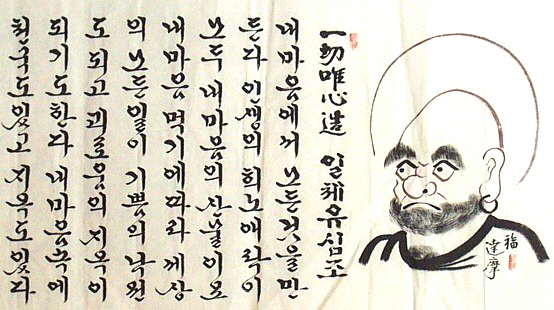 福
達摩
一切唯心造 일체유심조
내 마음에서 모든것을 만
든다 인생의 희노애락이
모두 내 마음의 산물이요
내 마음 먹기에 따라 세상
의 모든 일이 기쁨의 낙원
도 되고 괴로움의 지옥이
되기도 한다 내 마음속에
천국도 있고 지옥도 있다